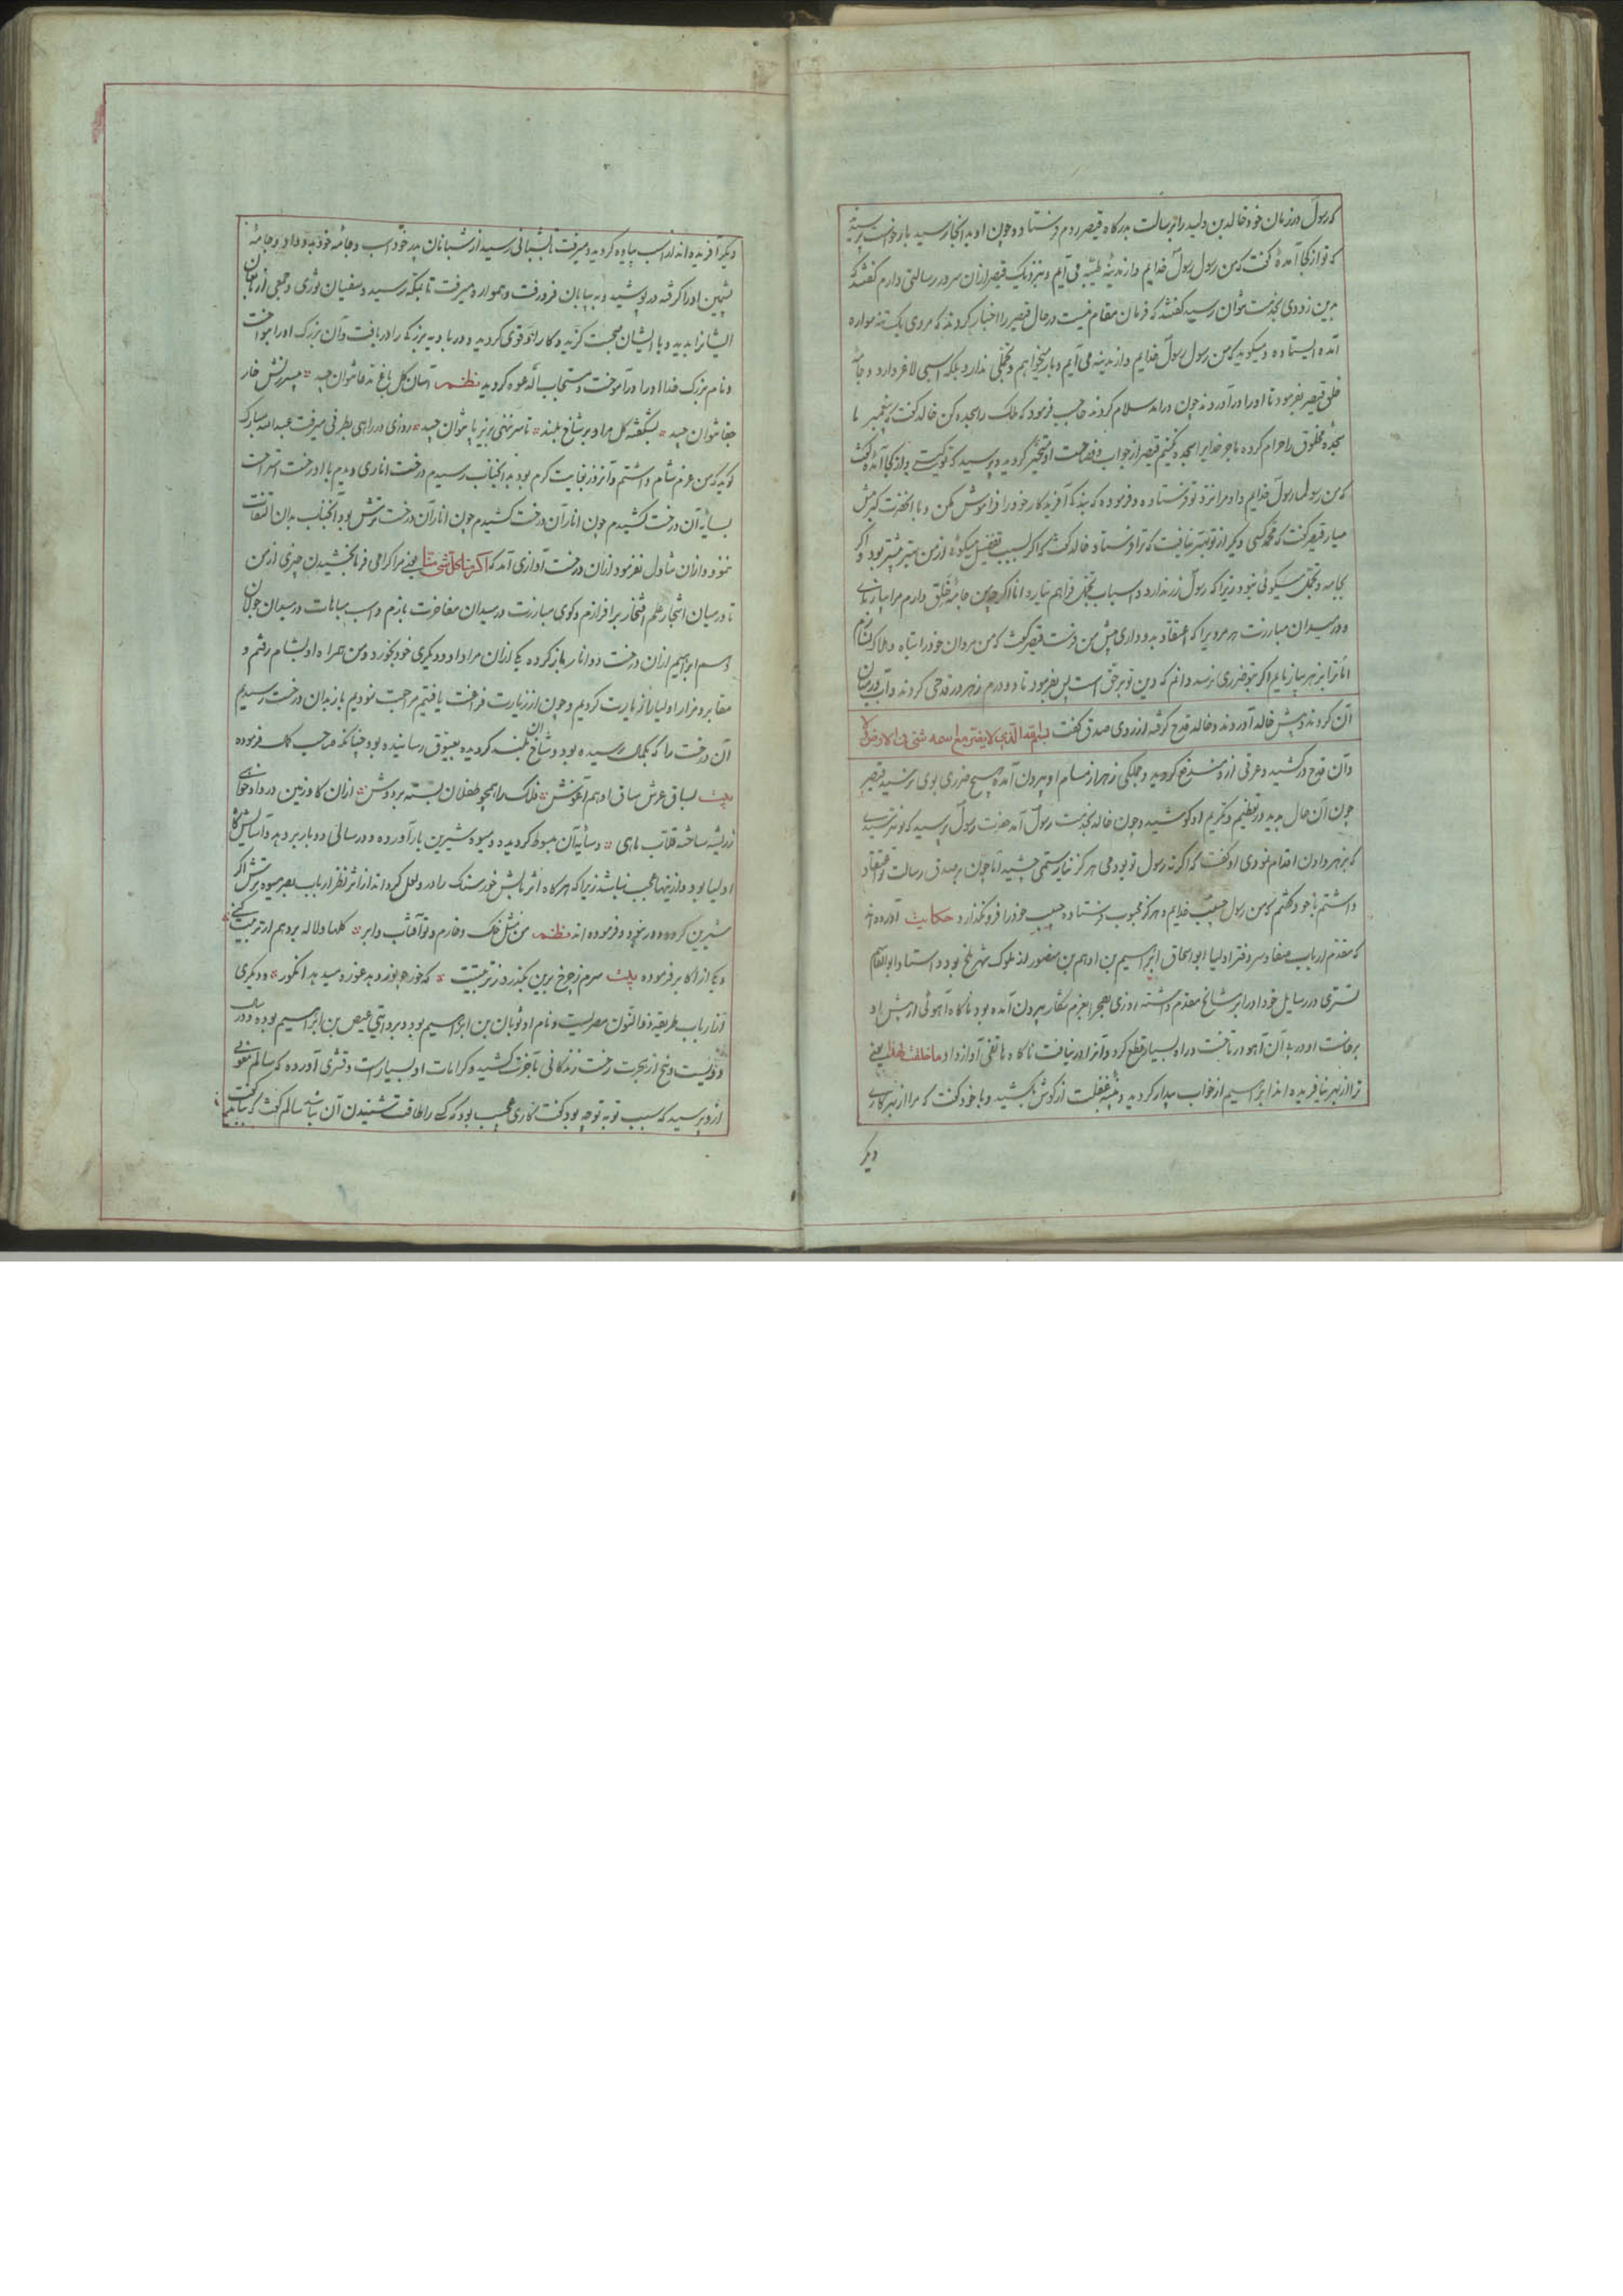 که رسول در زمان خود خالد بن ولید را برسالت بدرگاه قیصر روم فرستاده و چون او بدانجا رسید بار خواست
که تو از کجا آمدهٔ گفت که من رسول رسول خدایم و از مدینهٔ طیبه می آیم و بنزدیک قیصر ازان سرور رسالتی دارم گفتند که
بدین زودی بخدمت نتوان رسید گفتند که فرمان مقام نیست در حال قیصر را اخبار کردند که مردی یک تنه سواره
آمده ایستاده و میگوید که من رسول رسول خدایم و از مدینه می آیم و بار میخواهم و تجملی ندارد بلکه اسبی لاغر دارد و جامهٔ
خلق قیصر بفرمود تا او را درآوردند چون درآمد سلام کردند حاجب فرمود که ملک را سجده کن خالد گفت که پیغمبر ما
سجدهٔ مخلوق را حرام کرده ما جز خدایرا سجده نکنیم قیصر از جواب و فصاحت او متحیر گردید و پرسید که تو کیستی و از کجا آمدهٔ گفت
که من رسول رسول خدایم و او مرا نزد تو فرستاده و فرموده که بنده که آفریدگار خود را فراموش مکن و با آنحضرت کبر پیش
میار قیصر گفت که محمد کسی دیگر از تو بهتر نیافت که ترا فرستاد خالد گفت که اگر بسبب تفضیل میگوئی از من بهتر بیشتر بود و اگر
بجامه و تجمل میگوئی نبود زیرا که رسول زر ندارد و اسباب تجمل فراهم نیارد اما اگر چون جامهٔ خلق دارم مرا بیازمای
و در میدان مبارزت هر مردیرا که اعتقاد بدو داری پیش من فرست قیصر گفت که من مردان خود را تباه و هلاک نسازم
اما ترا بزهر بیازمایم اگر بتو ضرری نرسد دانم که دین تو بر حق است پس بفرمود تا دو درم زهر در قدحی کردند و آب در میان
آن کردند و پیش خالد آوردند و خالد قدح گرفته از روی صدق گفت بسم الله الذی لا یضر مع اسمه شئ فی الارض ولا
و آن قدح درکشید و عرقی از و مندفع گردید و جملگی زهر از مسام او بیرون آمده هیچ ضرری بوی نرسید قیصر
چون آن حال بدید در تعظیم و تکریم او کوشید و چون خالد بخدمت رسول آمد حضرت رسول پرسید که تو نترسیدی
که بزهر دادن اقدام نمودی او گفت که اگر نه رسول تو بودمی هرگز نیارستمی چشید اما چون بر صدق رسالت تو اعتقاد
داشتم با خود گفتم که من رسول حبیب خدایم و هرگز محبوب فرستادهٔ حبیب خود را فرونگذارد حکایت آورده اند
که مقدم ارباب صفا و سر دفتر اولیا ابو اسحاق ابراهیم بن ادهم بن منصور از ملوک شهر بلخ بود و استاد ابو القاسم
قشیری در رسایل خود او را بر مشایخ مقدم داشته روزی بصحرا بعزم شکار بیرون آمده بود ناگاه آهوئی از پیش او
برخاست او در پی آن آهو در تاخت و راه بسیار قطع کرد و آنرا درنیافت ناگاه هاتفی آواز داد ما خلقت لهذا یعنی
ترا از بهر این نیافریده اند ابراهیم از خواب بیدار گردید و پنبهٔ غفلت از گوش بکشید و با خود گفت که مرا از بهر کاری
دیگر
دیگر آفریده اند از اسب پیاده گردید و میرفت تا بشبانی رسید از شبانان پدر خود اسب و جامه خود بدو داد و جامهٔ
پشمین او را گرفته درپوشید و به بیابان فرورفت و همواره میرفت تا بمکه رسید و سفیان ثوری و جمعی از بزرگان
ایشانرا بدید و با ایشان صحبت گزید و کار او قوی گردید و در بادیه بزرگی را دریافت و آن بزرگ او را بنواخت
و نام بزرگ خدا او را درآموخت و مستجاب الدعوه گردید نظم آسان گل باغ مدعا نتوان چید * بی سرزنش خار
جفا نتوان چید * بشگفته گل مراد بر شاخ بلند * تا سر ننهی بزیر پا نتوان چید * روزی در راهی بطرفی میرفت عبدالله مبارک
گوید که من عزم شام داشتم و آنروز بغایت گرم بود با آنجناب رسیدم درخت اناری دیدم با او رخت استراحت
بسایهٔ آن درخت کشیدم چون انار آن درخت کشیدم چون انار آن درخت ترش بود آنجناب بدان التفات
ننمود و ازان تناول نفرمود ازان درخت آوازی آمد که اکرمنا بأکل شئ منا یعنی مرا گرامی فرما بخشیدن چیزی از من
تا در میان اشجار علم افتخار برافرازم و گوی مبارزت در میدان مفاخرت بازم و اسب مباهات در میدان جولان
دهم ابراهیم ازان درخت دو انار باز کرده یکی ازان مرا داد و دیگری خود بخورد و من همراه او بشام رفتم و
مقابر و مزار اولیا را زیارت کردیم و چون از زیارت فراغت یافتیم مراجعت نمودیم باز بدان درخت رسیدیم
آن درخت را که بکمال رسیده بود و شاخ آن بلند گردیده بعیوق رسانیده بود چنانکه صاحب کمال فرموده
بیت بساق عرش ساق او هم آغوش * فلک را همچو طفلان بسته بر دوش * ازان گاو زمین در داد خواهی
ز ریشه ساخته قلاب ماهی * و سایهٔ آن مبسوط گردیده و میوه شیرین بار آورده و در سالی دو بار بر دهد و آسایش گاه
اولیا بود و ازینها عجب نباشد زیرا که هرگاه اثر تابش خور سنگ را در و لعل گرداند از اثر نظر ارباب بصر میوه ترش اگر
شیرین گردد دور نبود و فرموده اند نظم من مثل خاک و خارم و تو آفتاب و ابر * گلها و لاله بردهم ار تربیت کنی
و یکی از اکابر فرموده بیت سرم ز چرخ برین بگذرد ز تربیتت * که خور چو نور دهد غوره میدهد انگور * و دیگری
از ارباب طریقه ذوالنون مصریست و نام او ثوبان بن ابراهیم بود و بروایتی فیض بن ابراهیم بوده و در سال
دویست و پنج از هجرت رخت زندگانی بآخرت کشید و کرامات او بسیار است و قشیری آورده که سالم مغربی
ازو پرسید که سبب توبه تو چه بود گفت کاری عجیب بود که کسی را طاقت شنیدن آن نباشد سالم گفت که